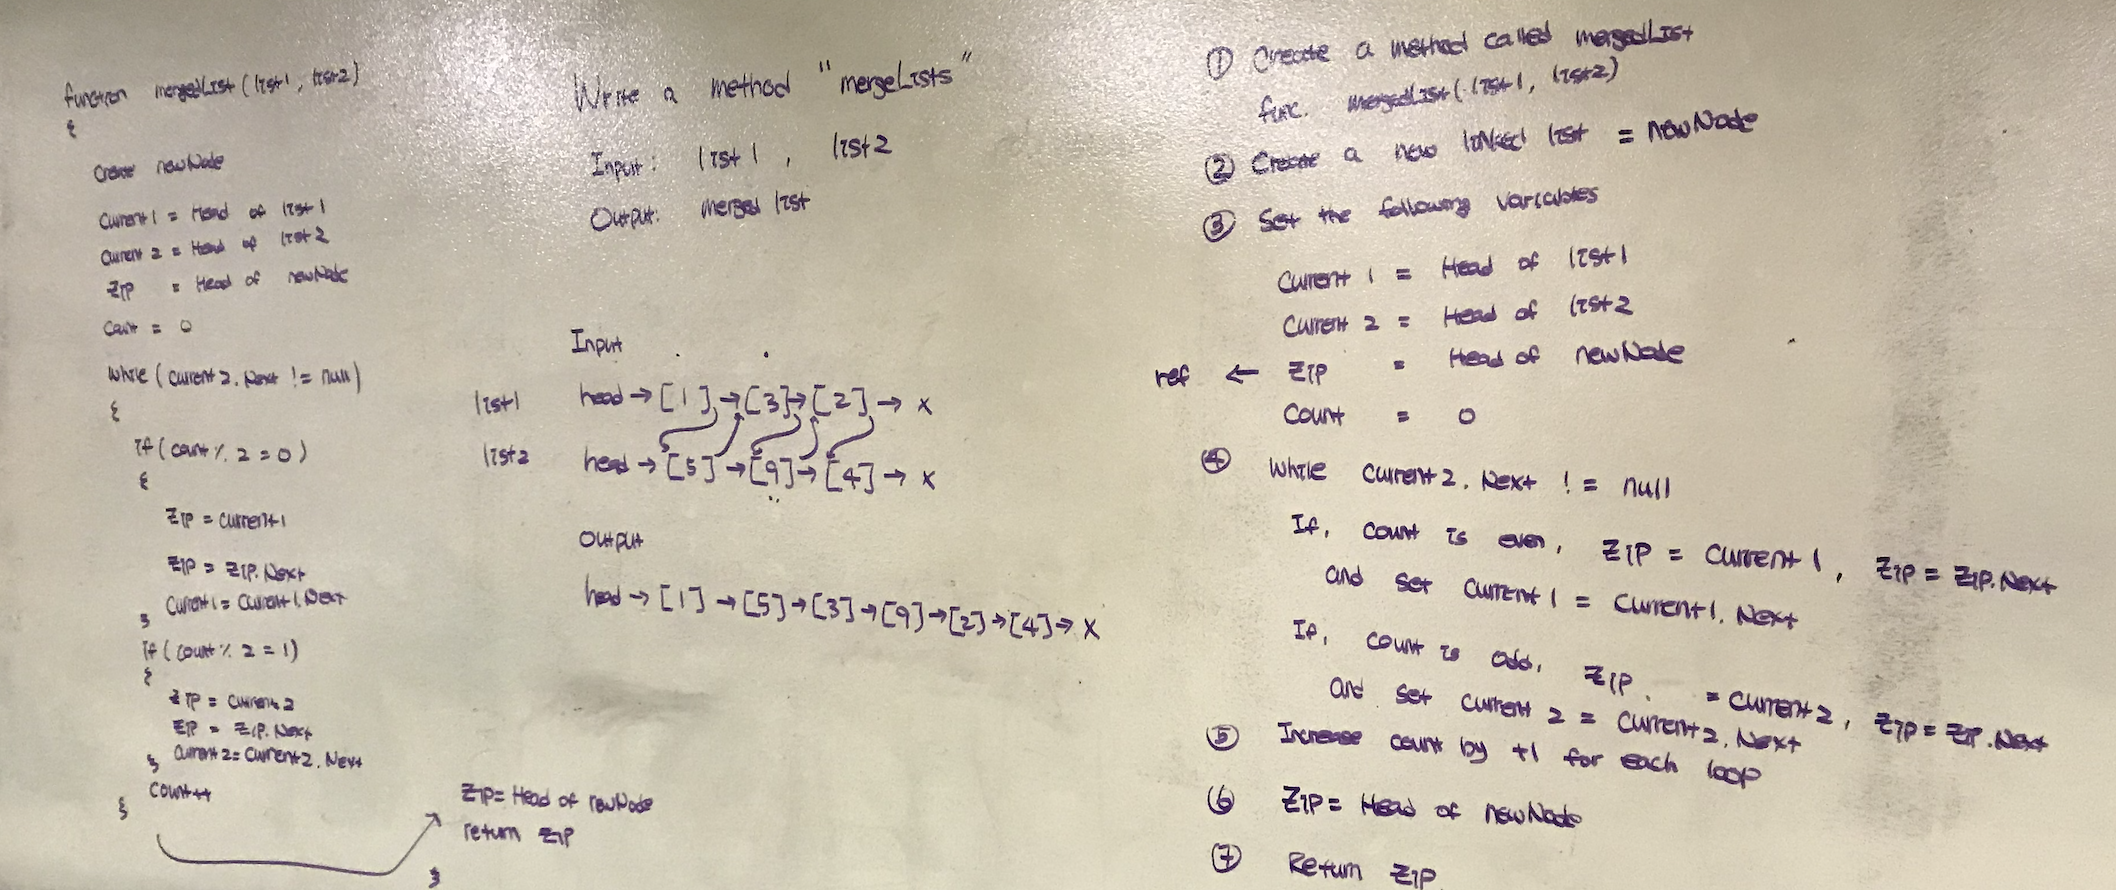 function mergedList (list1, list2)
{
Create newNode
Current1 = Head of list1
Current 2 = Head of list2
ZIP = Head of newNode
Count = 0
While ( Current2.Next != null )
{
If ( count % 2 = 0 )
{
ZIP = Current1
ZIP = ZIP.Next
Current1 = Current1.Next
}
If ( count % 2 = 1 )
{
ZIP = Current2
ZIP = ZIP.Next
Current2 = Current2.Next
}
Count++
}
ZIP = Head of newNode
return ZIP
}
Write a method "mergeLists"
Input: list1, list2
Output: merged list
Input
list1 head → [1] → [3] → [2] → X
list2 head → [5] → [9] → [4] → X
Output
head → [1] → [5] → [3] → [9] → [2] → [4] → X
① Create a method called mergedList
func. mergedList (list1, list2)
② Create a new linked list = newNode
③ Set the following variables
Current 1 = Head of list1
Current 2 = Head of list2
ref ← ZIP = Head of newNode
Count = 0
④ While current2.Next != null
If, count is even, ZIP = Current1, ZIP = ZIP.Next
and set Current1 = Current1.Next
If, count is odd, ZIP = Current2, ZIP = ZIP.Next
and set Current2 = Current2.Next
⑤ Increase count by +1 for each loop
⑥ ZIP = Head of newNode
⑦ Return ZIP